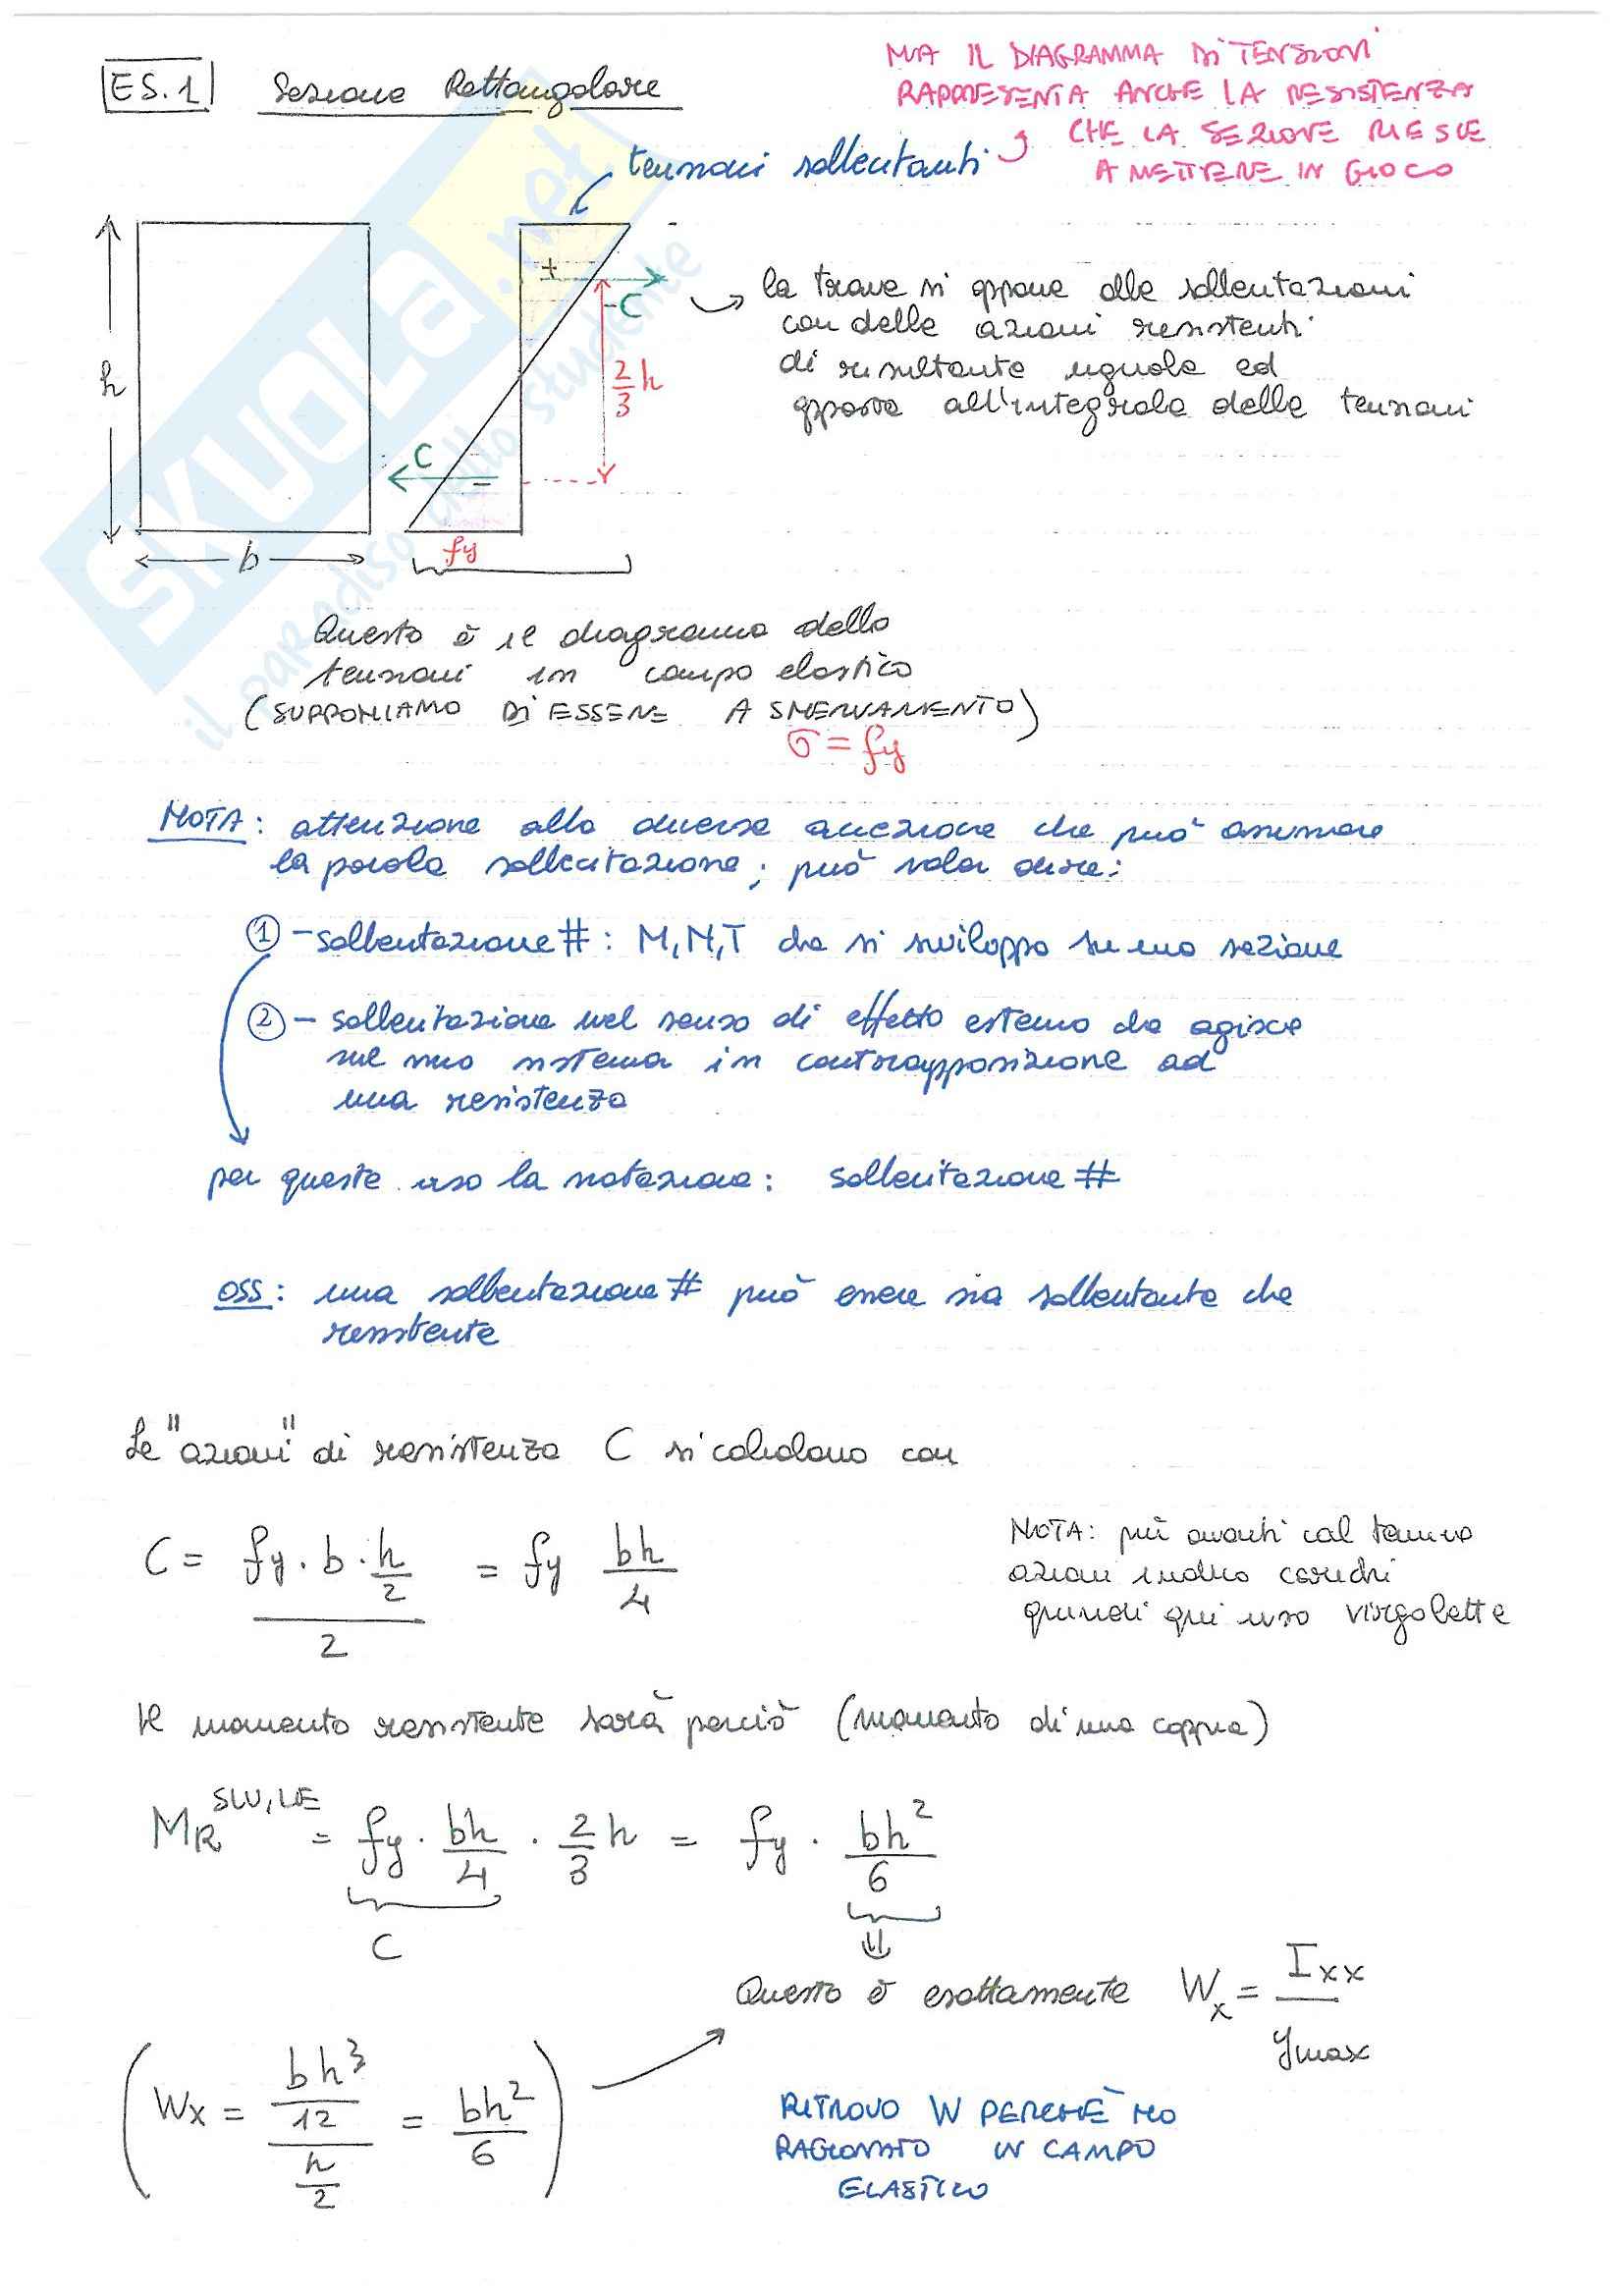 ES.1 Sezione Rettangolare
MA IL DIAGRAMMA DI TENSIONI
RAPPRESENTA ANCHE LA RESISTENZA
CHE LA SEZIONE RIESCE
A METTERE IN GIOCO
tensioni sollecitanti
h
b
+
-C
2/3 h
C
-
fy
la trave si oppone alle sollecitazioni
con delle azioni resistenti
di risultante uguale ed
opposta all'integrale delle tensioni
Questo è il diagramma delle
tensioni in campo elastico
(SUPPONIAMO DI ESSERE A SNERVAMENTO)
σ = fy
NOTA: attenzione alla diversa accezione che può assumere
la parola sollecitazione; può voler dire:
① - sollecitazione #: M, N, T che si sviluppa su una sezione
② - sollecitazione nel senso di effetto esterno che agisce
sul mio sistema in contrapposizione ad
una resistenza
per queste uso la notazione: sollecitazione #
OSS: una sollecitazione # può essere sia sollecitante che
resistente
Le "azioni" di resistenza C si calcolano con
C = (fy · b · h/2)/2 = fy bh/4
NOTA: più avanti col termine
azioni indico carichi
quindi qui uso virgolette
Il momento resistente sarà perciò (momento di una coppia)
MR SLU, LE = fy · bh/4 · 2/3 h = fy · bh²/6
C
⇓
Questo è esattamente Wx = Ixx/ymax
(Wx = (bh³/12)/(h/2) = bh²/6)
RITROVO W PERCHÈ HO
RAGIONATO IN CAMPO
ELASTICO
SKUOLA.net
il paradiso dello studente